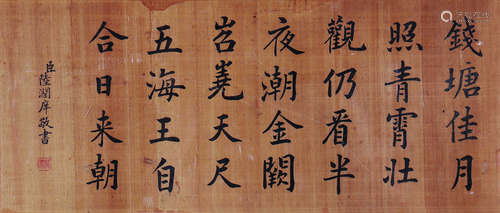 錢塘佳月
照青霄壯
觀仍看半
夜潮金闕
岧嶤天尺
五海王自
合日来朝
臣陸潤庠敬書